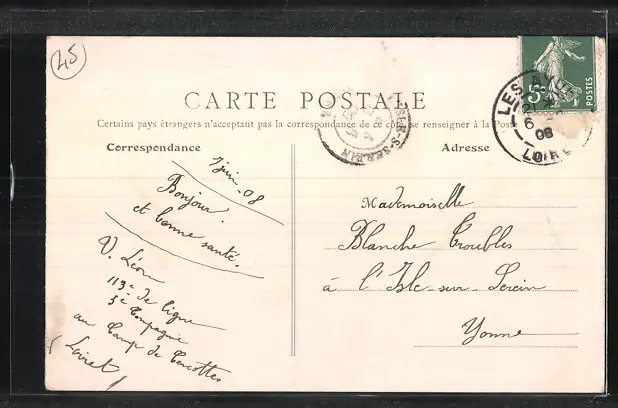 45
CARTE POSTALE
Certains pays étrangers n'acceptent pas la correspondance de ce côté se renseigner à la Poste
Correspondance
Adresse
7 juin - 08
Bonjour
et bonne santé.
V. Léon
113e de ligne
5e Compagnie
au Camp de Cercottes
(Loiret)
Mademoiselle
Blanche Troubles
à l'Isle-sur-Serein
Yonne
5c
POSTES
LES
6
08
LOIRET
ISLE-S-SEREIN